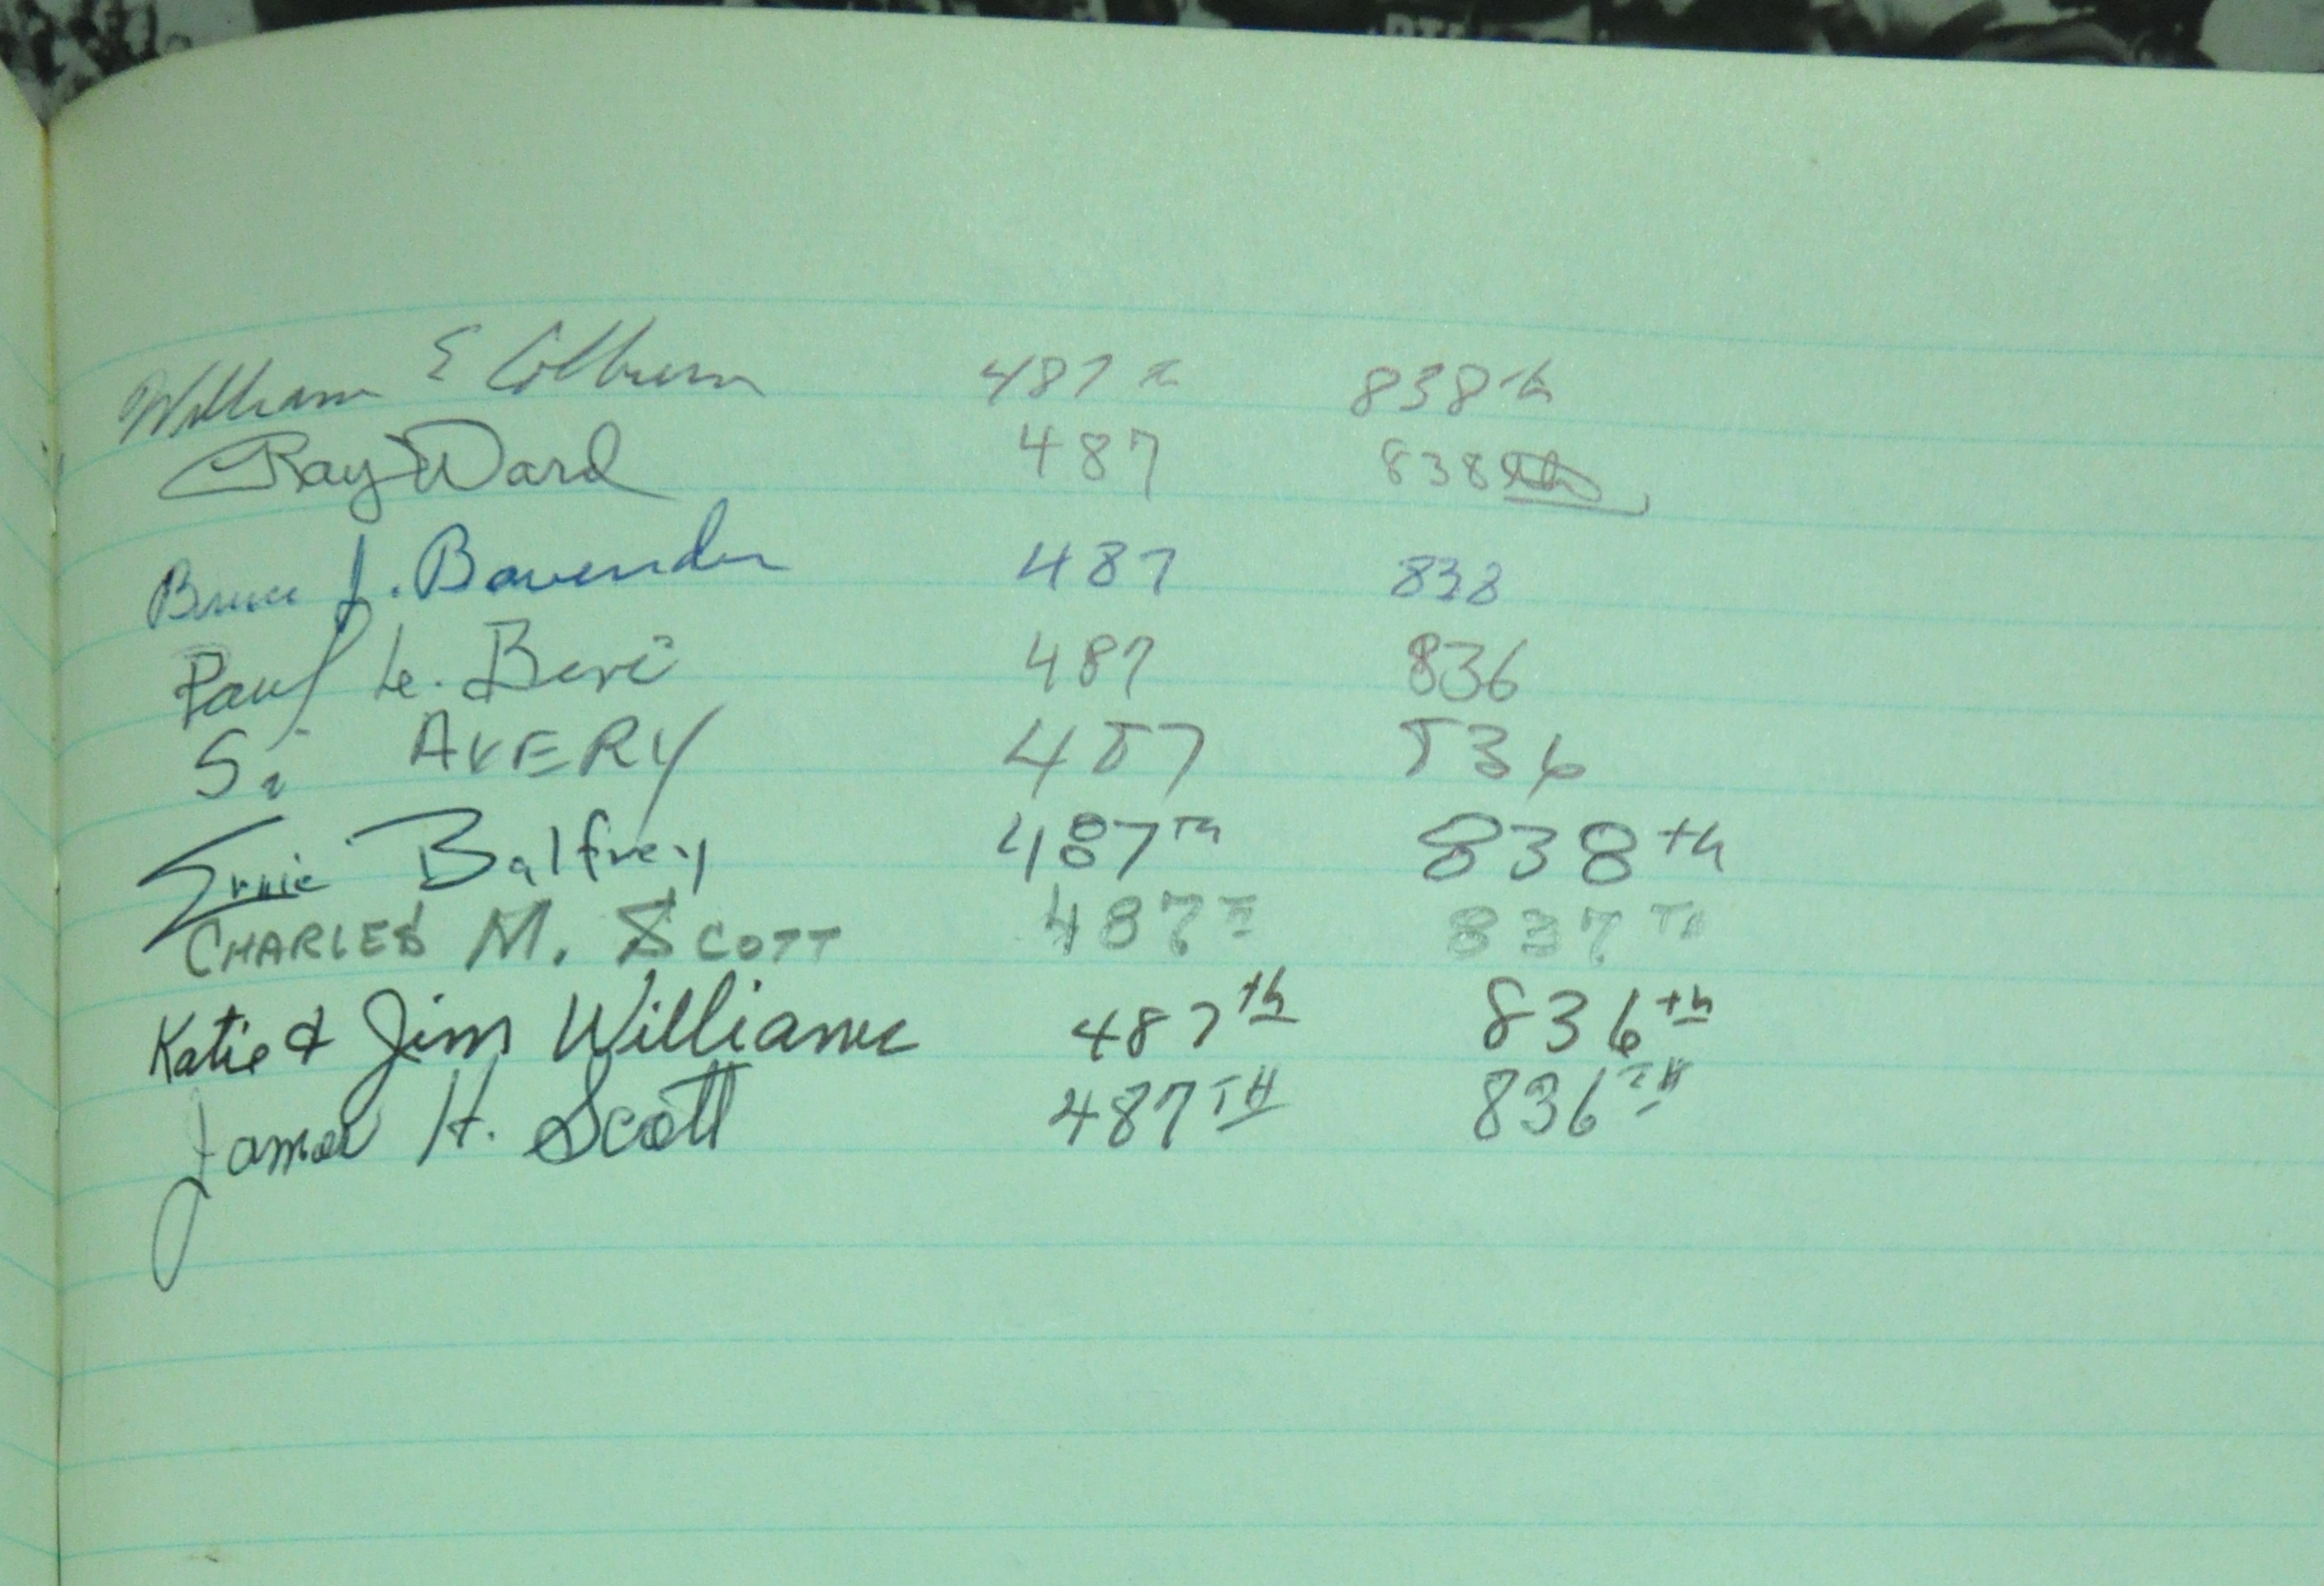 William E Colburn 487th 838th
Ray Ward 487 838th
Bruce J. Bavender 487 838
Paul Le. Beré 487 836
Si AVERY 487 836
Ernie Balfrey 487th 838th
CHARLES M. SCOTT 487TH 837TH
Katie & Jim Williams 487th 836th
James H. Scott 487TH 836TH